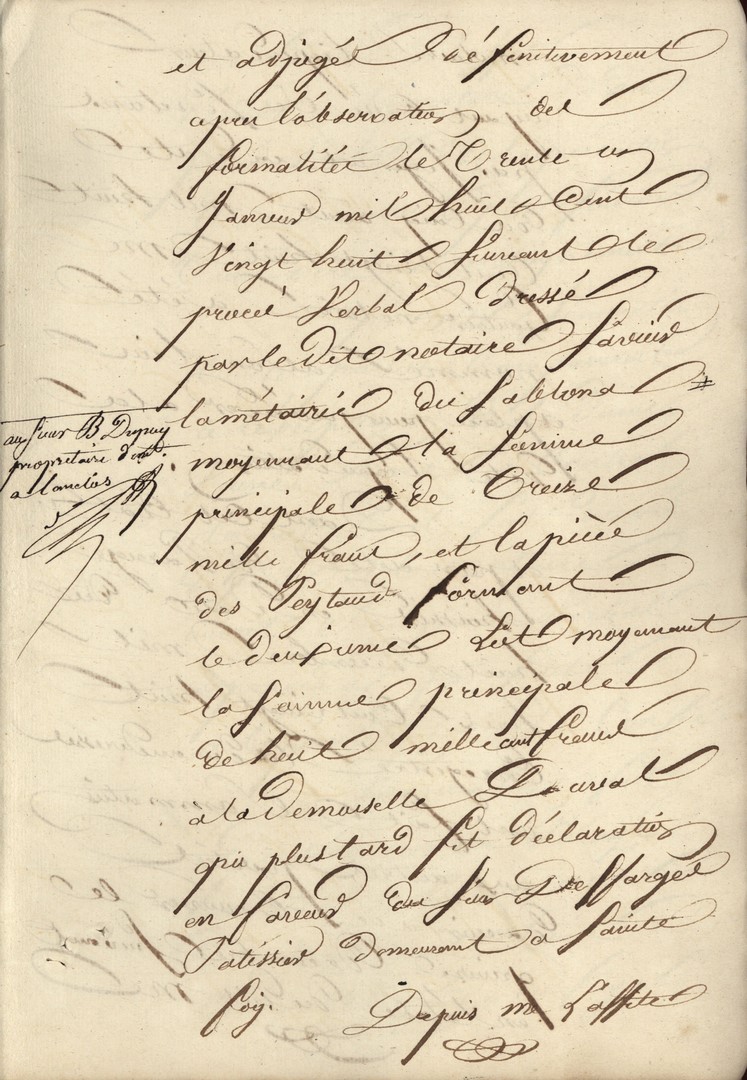 et adjugé définitivement
apres l'observation des
formalités le Trente un
Janvier mil huit Cent
Vingt huit suivant le
procès Verbal dressé
par le dit notaire savoir
la métairie du Sablona ⧧
au sieur B Dupuy
propriétaire demt.
a
moyennant la somme
principale de Treize
mille francs, et la pièce
des Peytaud formant
le deuxieme Lot moyennant
la somme principale
de huit mille cent francs
à la Demoiselle Duval
qui plus tard fit déclaration
en faveur du sieur Deffarges
Patissier demeurant a Sainte
foy. Depuis mr Laffite